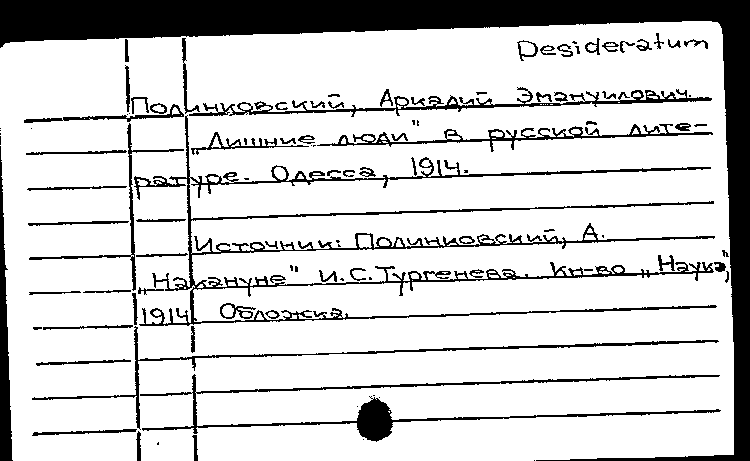 Desideratum
Полинковский, Аркадий Эмануилович.
„Лишние люди" в русской лите-
ратуре. Одесса, 1914.
Источник: Полинковский, А.
„Накануне" И.С.Тургенева. Кн-во „Наука",
1914. Обложка.